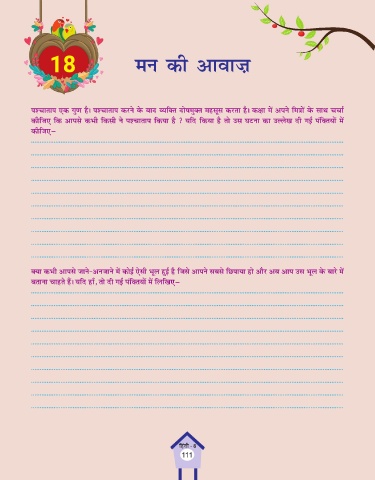 18
मन की आवाज़
पाश्चाताप एक गुण है। पाश्चाताप करने के बाद व्यक्ति दोषमुक्त महसूस करता है। कक्षा में अपने मित्रों के साथ चर्चा
कीजिए कि आपसे कभी किसी ने पश्चाताप किया है ? यदि किया है तो उस घटना का उल्लेख दी गई पंक्तियों में
कीजिए–
क्या कभी आपसे जाने-अनजाने में कोई ऐसी भूल हुई है जिसे आपने सबसे छिपाया हो और अब आप उस भूल के बारे में
बताना चाहते हैं। यदि हाँ, तो दी गई पंक्तियों में लिखिए–
हिंदी - 8
111